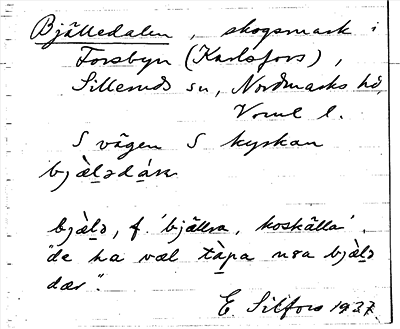 Bjälledalen, skogsmark i
Forsbyn (Karlsfors),
Silleruds sn, Nordmarks hd,
Vrml l.
S vägen S kyrkan
bjæ̀l̠ədálən
bjæ̀l̠ə, f. 'bjällra, koskälla'.
"de ha væl tàpa nra bjæ̀l̠ə
dær".
E. Silfors 1937.